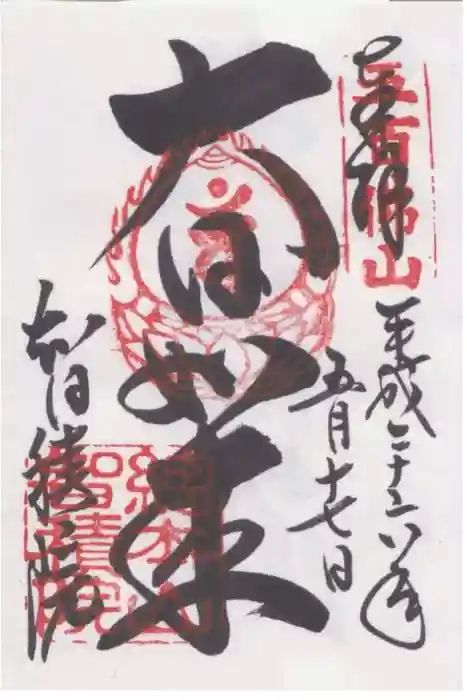 奉拝
五百佛山
平成二十六年
五月十七日
大日如来
智積院
総本山
智積院